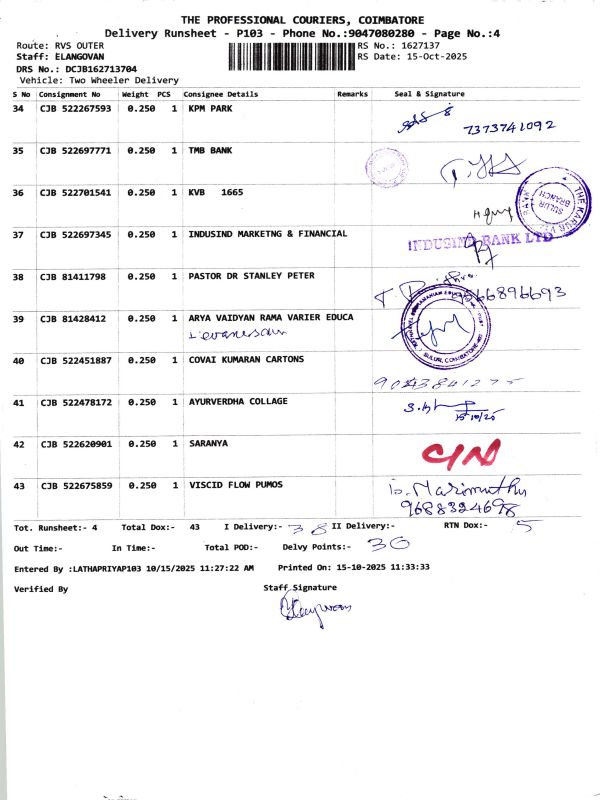 THE PROFESSIONAL COURIERS, COIMBATORE
Delivery Runsheet - P103 - Phone No.:9047080280 - Page No.:4
Route: RVS OUTER RS No.: 1627137
Staff: ELANGOVAN RS Date: 15-Oct-2025
DRS No.: DCJB162713704
Vehicle: Two Wheeler Delivery
S No Consignment No Weight PCS Consignee Details Remarks Seal & Signature
34 CJB 522267593 0.250 1 KPM PARK
7373741092
35 CJB 522697771 0.250 1 TMB BANK
36 CJB 522701541 0.250 1 KVB 1665
SULUR BRANCH
37 CJB 522697345 0.250 1 INDUSIND MARKETNG & FINANCIAL
INDUSIND BANK LTD
38 CJB 81411798 0.250 1 PASTOR DR STANLEY PETER
9566896693
39 CJB 81428412 0.250 1 ARYA VAIDYAN RAMA VARIER EDUCA
40 CJB 522451887 0.250 1 COVAI KUMARAN CARTONS
9043841275
41 CJB 522478172 0.250 1 AYURVERDHA COLLAGE
15/10/25
42 CJB 522620901 0.250 1 SARANYA
C/N
43 CJB 522675859 0.250 1 VISCID FLOW PUMOS
b. Marimuthu
9688324698
Tot. Runsheet:- 4 Total Dox:- 43 I Delivery:- 38 II Delivery:- RTN Dox:- 5
Out Time:- In Time:- Total POD:- Delvy Points:- 30
Entered By :LATHAPRIYAP103 10/15/2025 11:27:22 AM Printed On: 15-10-2025 11:33:33
Verified By Staff Signature